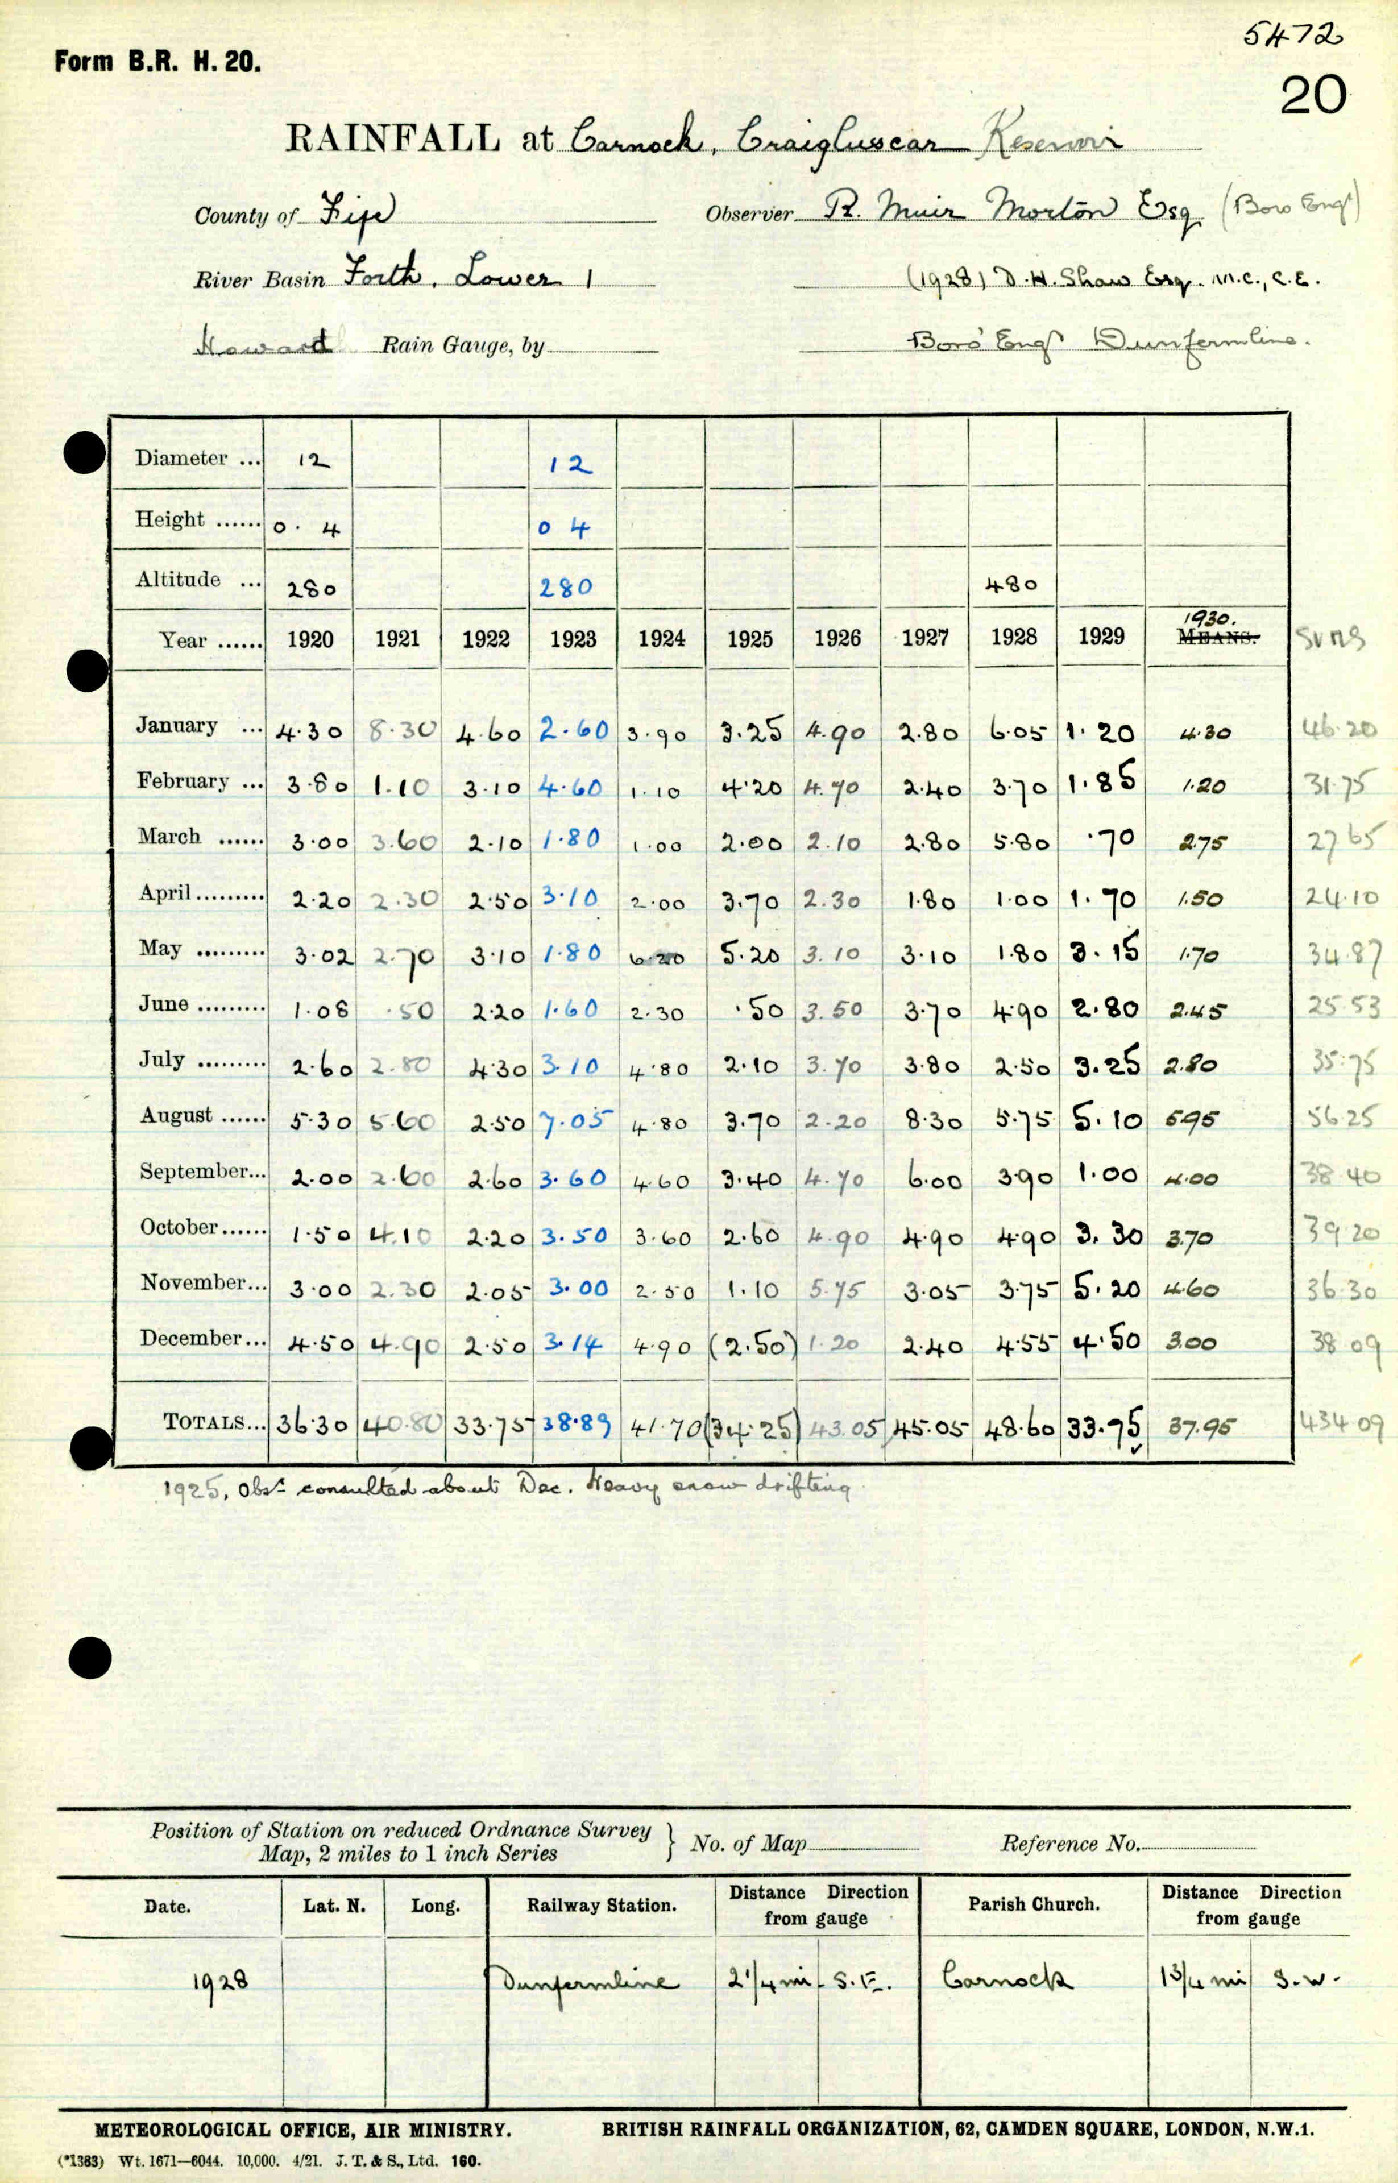 5472
Form B.R. H. 20.
20
RAINFALL at Carnock, Craigluscar Reservoir
County of Fife Observer R. Muir Morton Esq (Boro Engr)
River Basin Forth. Lower 1 (1928) D. H. Shaw Esq. M.C., C.E.
Howard Rain Gauge, by Boro' Engr Dunfermline.
Diameter ... 12 12
Height ...... 0. 4 0 4
Altitude ... 280 280 480
1930.
Year ...... 1920 1921 1922 1923 1924 1925 1926 1927 1928 1929 MEANS. Sums
January ... 4.30 8.30 4.60 2.60 3.90 3.25 4.90 2.80 6.05 1.20 4.30 46.20
February ... 3.80 1.10 3.10 4.60 1.10 4.20 4.70 2.40 3.70 1.85 1.20 31.75
March ...... 3.00 3.60 2.10 1.80 1.00 2.00 2.10 2.80 5.80 .70 2.75 27 65
April ......... 2.20 2.30 2.50 3.10 2.00 3.70 2.30 1.80 1.00 1.70 1.50 24.10
May ......... 3.02 2.70 3.10 1.80 6.20 5.20 3.10 3.10 1.80 3.15 1.70 34.87
June ......... 1.08 .50 2.20 1.60 2.30 .50 3.50 3.70 4.90 2.80 2.45 25.53
July ......... 2.60 2.80 4.30 3.10 4.80 2.10 3.70 3.80 2.50 3.25 2.80 35.75
August ...... 5.30 5.60 2.50 7.05 4.80 3.70 2.20 8.30 5.75 5.10 5.95 56.25
September... 2.00 2.60 2.60 3.60 4.60 3.40 4.70 6.00 3.90 1.00 4.00 38.40
October...... 1.50 4.10 2.20 3.50 3.60 2.60 4.90 4.90 4.90 3.30 3.70 39 20
November... 3.00 2.30 2.05 3.00 2.50 1.10 5.75 3.05 3.75 5.20 4.60 36.30
December... 4.50 4.90 2.50 3.14 4.90 (2.50) 1.20 2.40 4.55 4.50 3.00 38 09
TOTALS... 36.30 40.80 33.75 38.89 41.70 (34.25) 43.05 45.05 48.60 33.75 37.95 434 09
1925, Obsr consulted about Dec. Heavy snow drifting.
Position of Station on reduced Ordnance Survey
Map, 2 miles to 1 inch Series } No. of Map Reference No.
Date. Lat. N. Long. Railway Station. Distance Direction from gauge Parish Church. Distance Direction from gauge
1928 Dunfermline 2 1/4 mi. S.E. Carnock 1 3/4 mi S.W.
METEOROLOGICAL OFFICE, AIR MINISTRY. BRITISH RAINFALL ORGANIZATION, 62, CAMDEN SQUARE, LONDON, N.W.1.
(*1383) Wt. 1671—6044. 10,000. 4/21. J. T. & S., Ltd. 160.